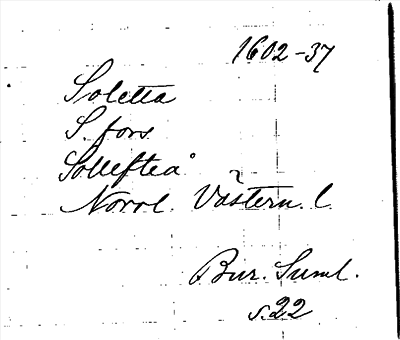 1602-37
Soletta
S. fors.
Sollefteå
Norrl. Västern. l.
Bur. Suml.
s. 22